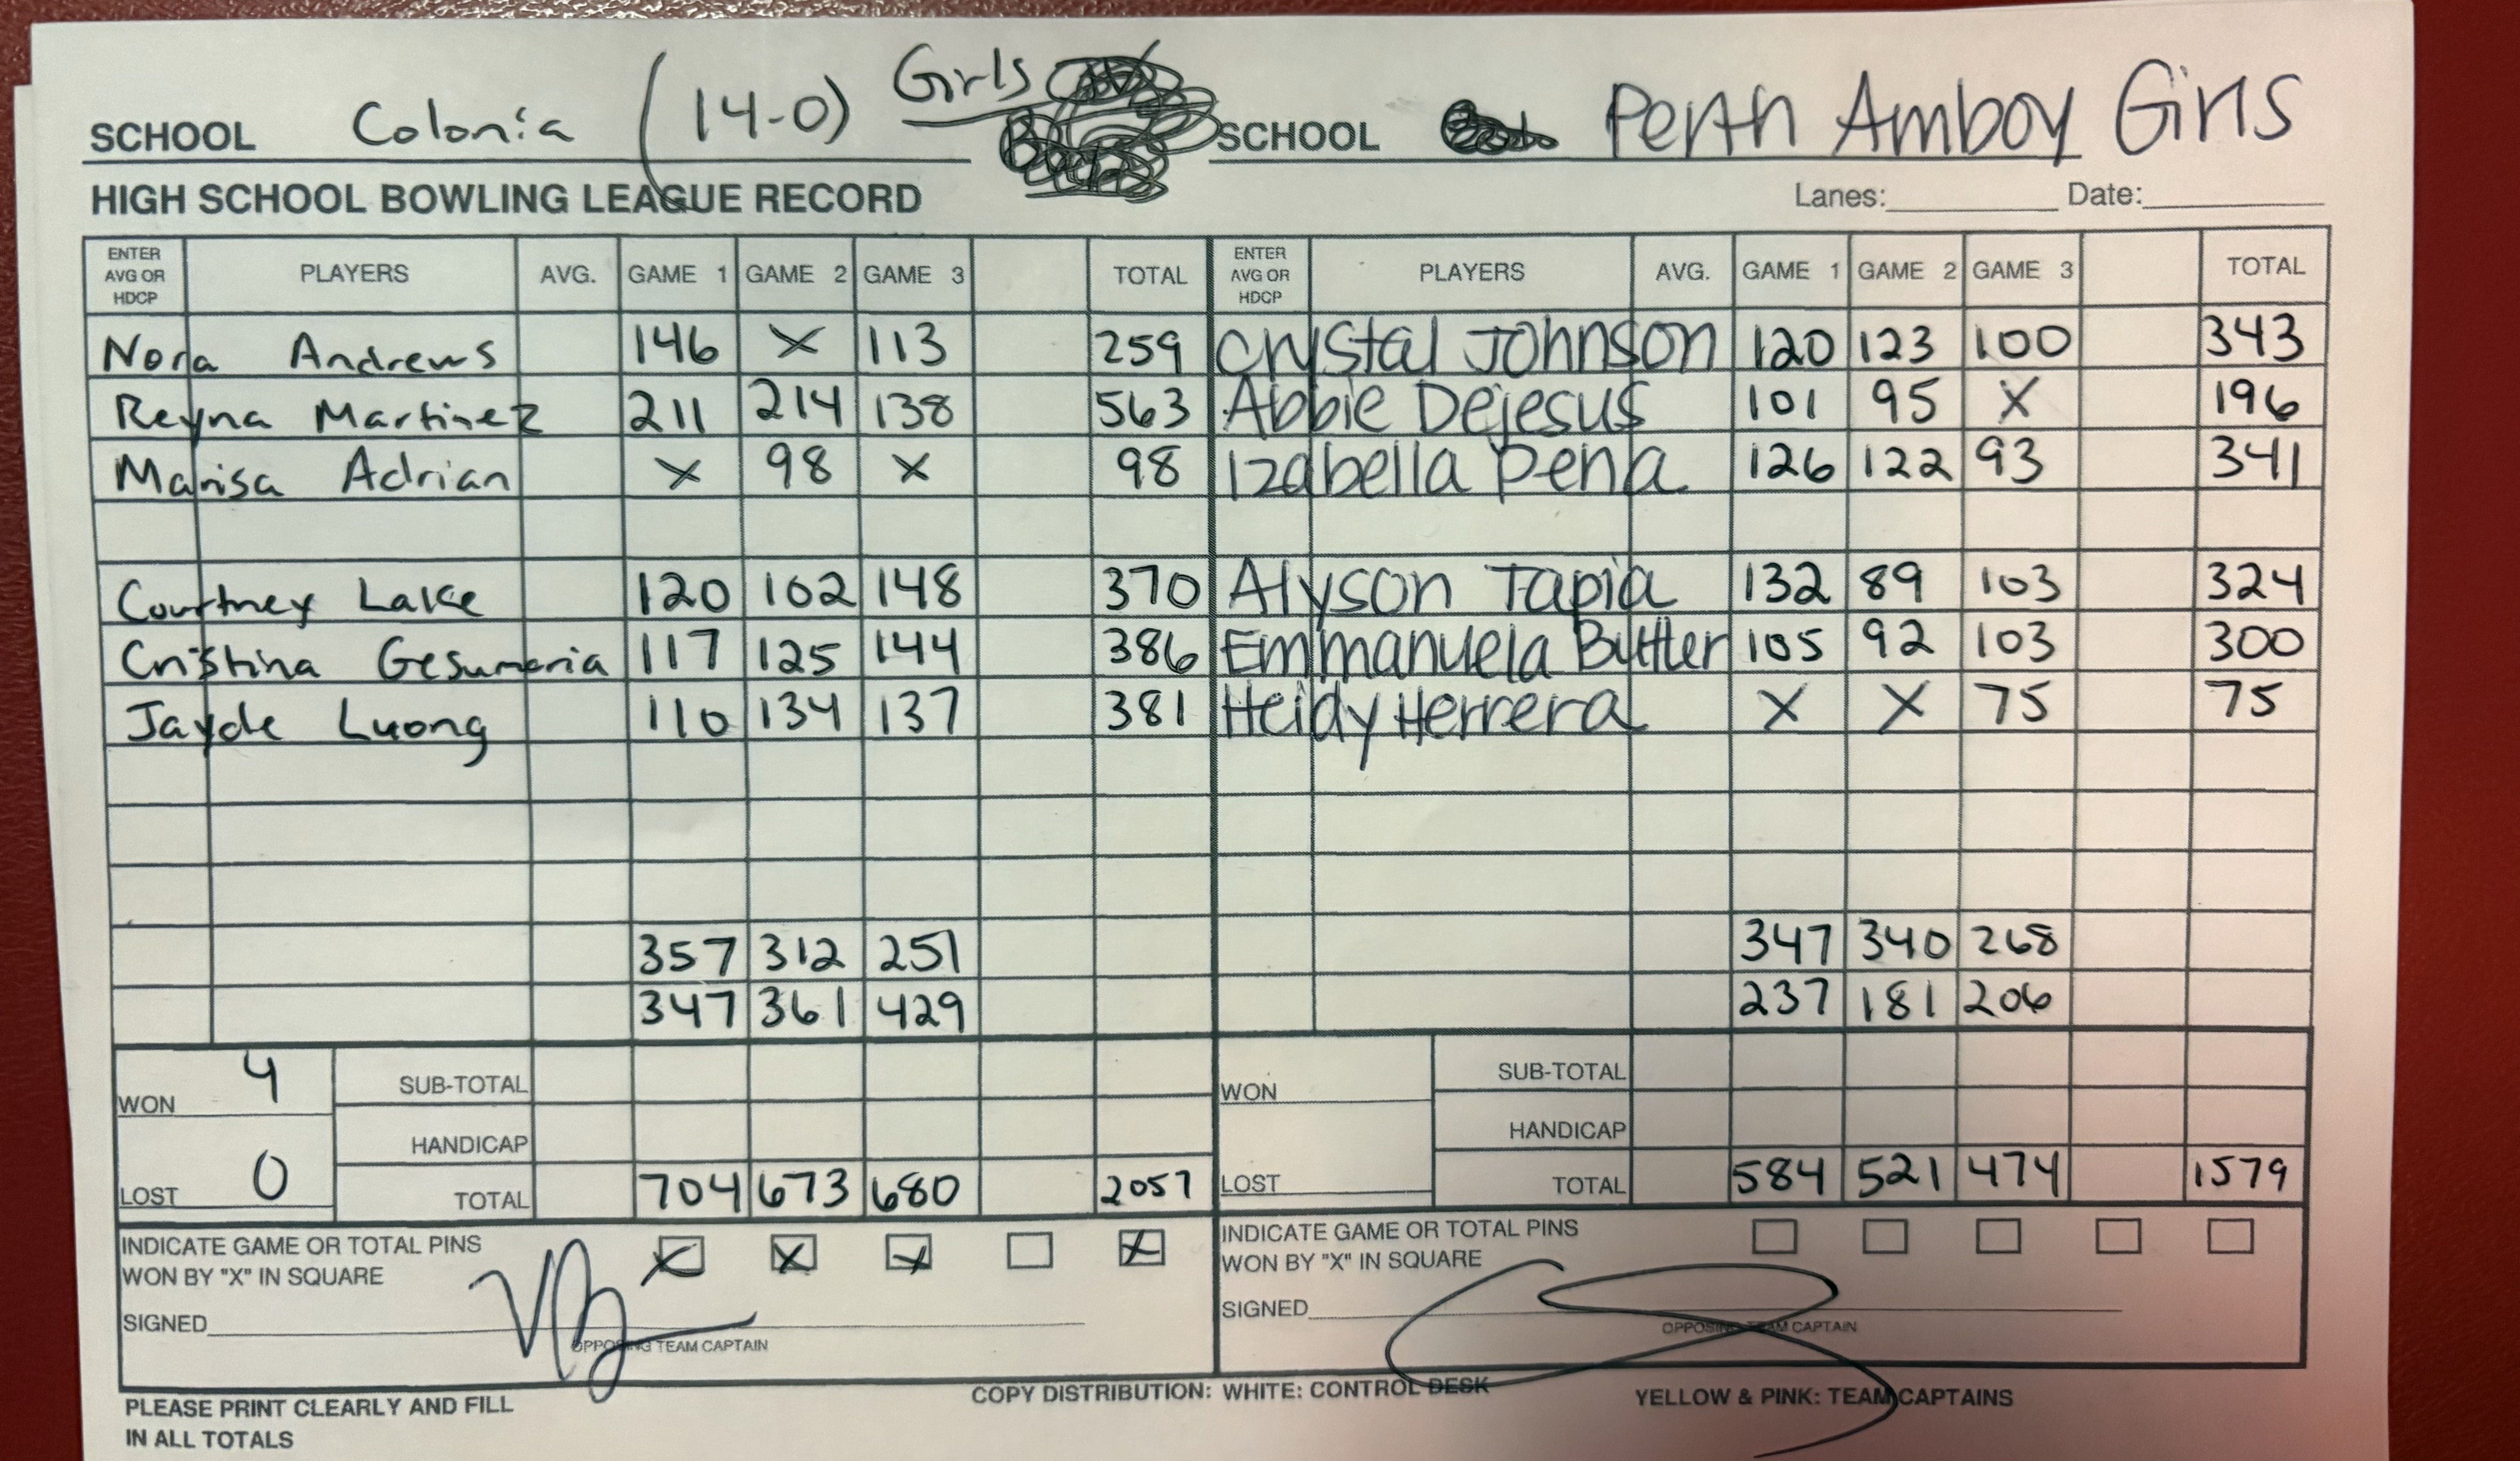 SCHOOL Colonia (14-0) Girls SCHOOL Perth Amboy Girls
HIGH SCHOOL BOWLING LEAGUE RECORD Lanes: Date:
ENTER AVG OR HDCP PLAYERS AVG. GAME 1 GAME 2 GAME 3 TOTAL ENTER AVG OR HDCP PLAYERS AVG. GAME 1 GAME 2 GAME 3 TOTAL
Nora Andrews 146 X 113 259 Crystal Johnson 120 123 100 343
Reyna Martinez 211 214 138 563 Abbie Dejesus 101 95 X 196
Marisa Adrian X 98 X 98 Izabella Pena 126 122 93 341
Courtney Lake 120 102 148 370 Alyson Tapia 132 89 103 324
Cristina Gesumaria 117 125 144 386 Emmanuela Buttler 105 92 103 300
Jayde Luong 110 134 137 381 Heidy Herrera X X 75 75
357 312 251 347 340 268
347 361 429 237 181 206
WON 4 SUB-TOTAL WON SUB-TOTAL
HANDICAP HANDICAP
LOST 0 TOTAL 704 673 680 2057 LOST TOTAL 584 521 474 1579
INDICATE GAME OR TOTAL PINS X X X X INDICATE GAME OR TOTAL PINS
WON BY "X" IN SQUARE WON BY "X" IN SQUARE
SIGNED SIGNED
OPPOSING TEAM CAPTAIN OPPOSING TEAM CAPTAIN
PLEASE PRINT CLEARLY AND FILL COPY DISTRIBUTION: WHITE: CONTROL DESK YELLOW & PINK: TEAM CAPTAINS
IN ALL TOTALS